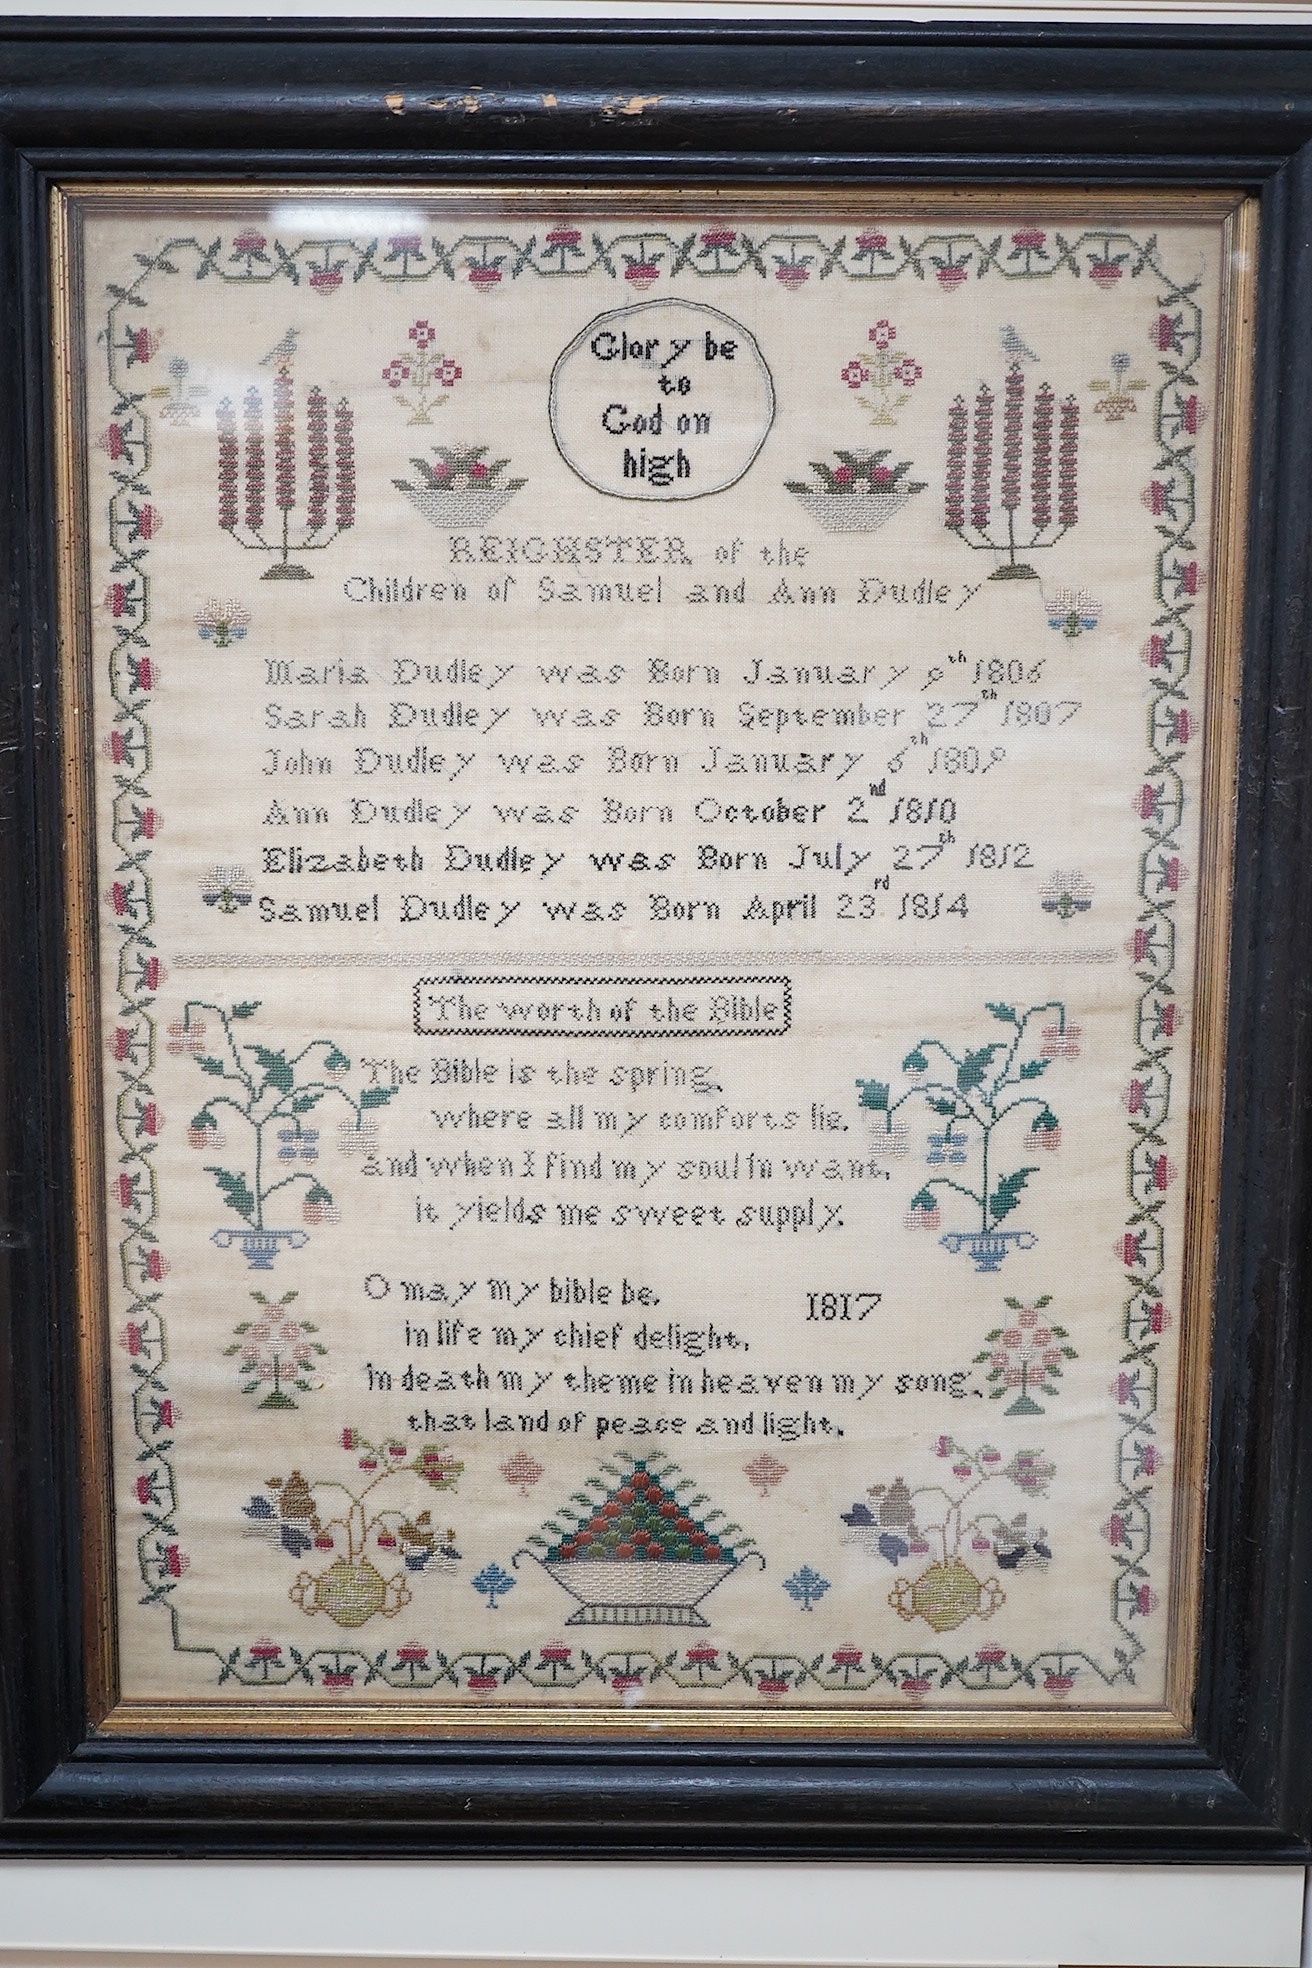 Glory be
to
God on
high
REIGHSTER of the
Children of Samuel and Ann Dudley
Maria Dudley was Born January 9th 1806
Sarah Dudley was Born September 27th 1807
John Dudley was Born January 6th 1809
Ann Dudley was Born October 2nd 1810
Elizabeth Dudley was Born July 27th 1812
Samuel Dudley was Born April 23rd 1814
The worth of the Bible
The Bible is the spring,
where all my comforts lie,
and when I find my soul in want,
it yields me sweet supply.
O may my bible be,
1817
in life my chief delight,
in death my theme in heaven my song,
that land of peace and light.